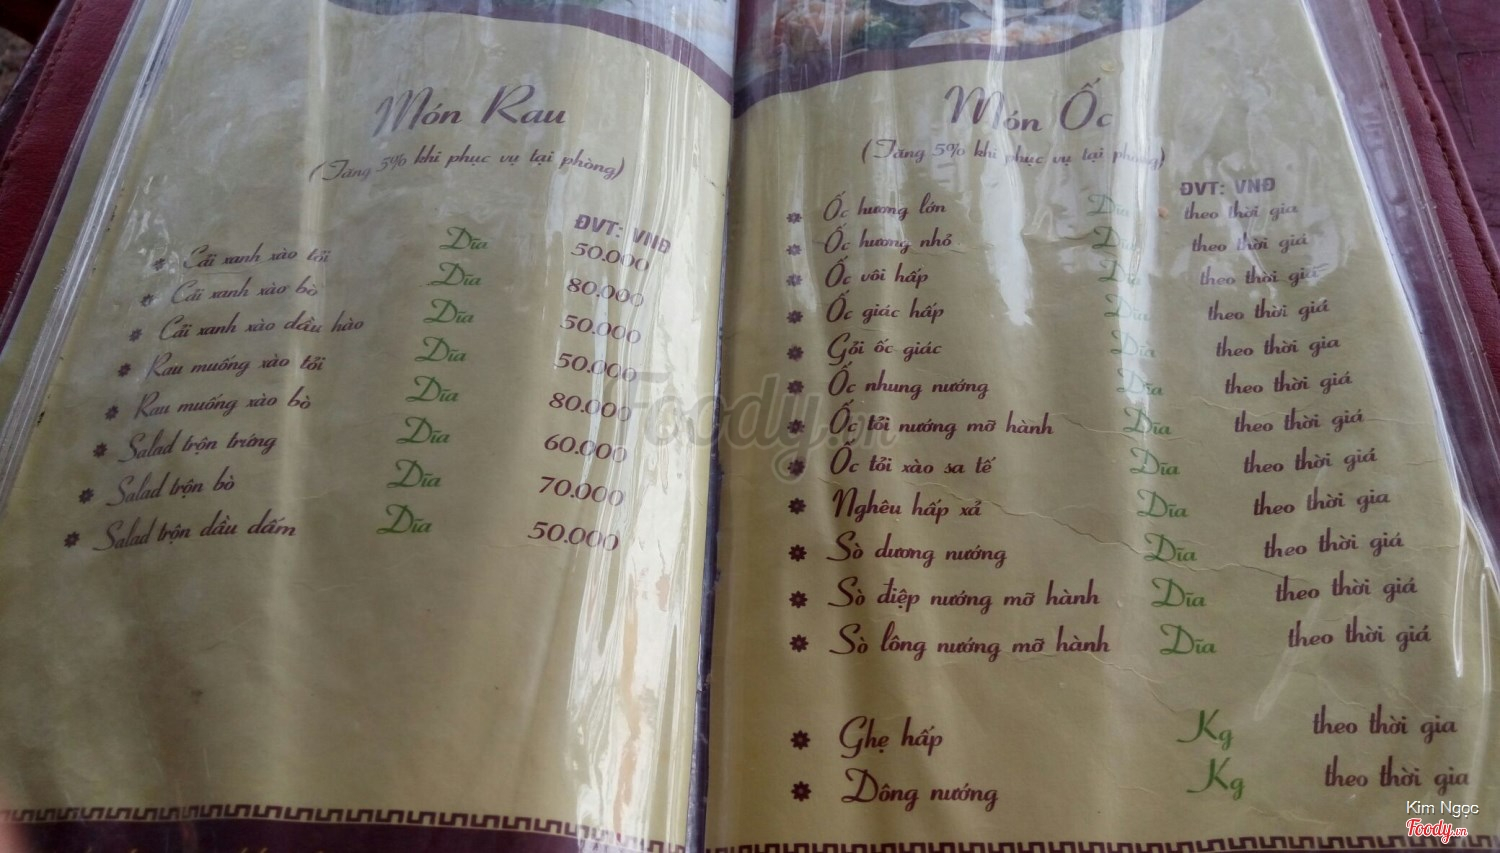 Món Rau
(Tăng 5% khi phục vụ tại phòng)
ĐVT: VNĐ
Cải xanh xào tỏi Dĩa 50.000
Cải xanh xào bò Dĩa 80.000
Cải xanh xào dầu hào Dĩa 50.000
Rau muống xào tỏi Dĩa 50.000
Rau muống xào bò Dĩa 80.000
Salad trộn trứng Dĩa 60.000
Salad trộn bò Dĩa 70.000
Salad trộn dầu dấm Dĩa 50.000
Món Ốc
(Tăng 5% khi phục vụ tại phòng)
ĐVT: VNĐ
Ốc hương lớn Dĩa theo thời gia
Ốc hương nhỏ Dĩa theo thời giá
Ốc vôi hấp Dĩa theo thời giá
Ốc giác hấp Dĩa theo thời giá
Gỏi ốc giác Dĩa theo thời gia
Ốc nhung nướng Dĩa theo thời giá
Ốc tỏi nướng mỡ hành Dĩa theo thời giá
Ốc tỏi xào sa tế Dĩa theo thời giá
Nghêu hấp xả Dĩa theo thời gia
Sò dương nướng Dĩa theo thời giá
Sò điệp nướng mỡ hành Dĩa theo thời giá
Sò lông nướng mỡ hành Dĩa theo thời giá
Ghẹ hấp Kg theo thời gia
Dông nướng Kg theo thời gia
Foody.vn
Kim Ngọc
Foody.vn